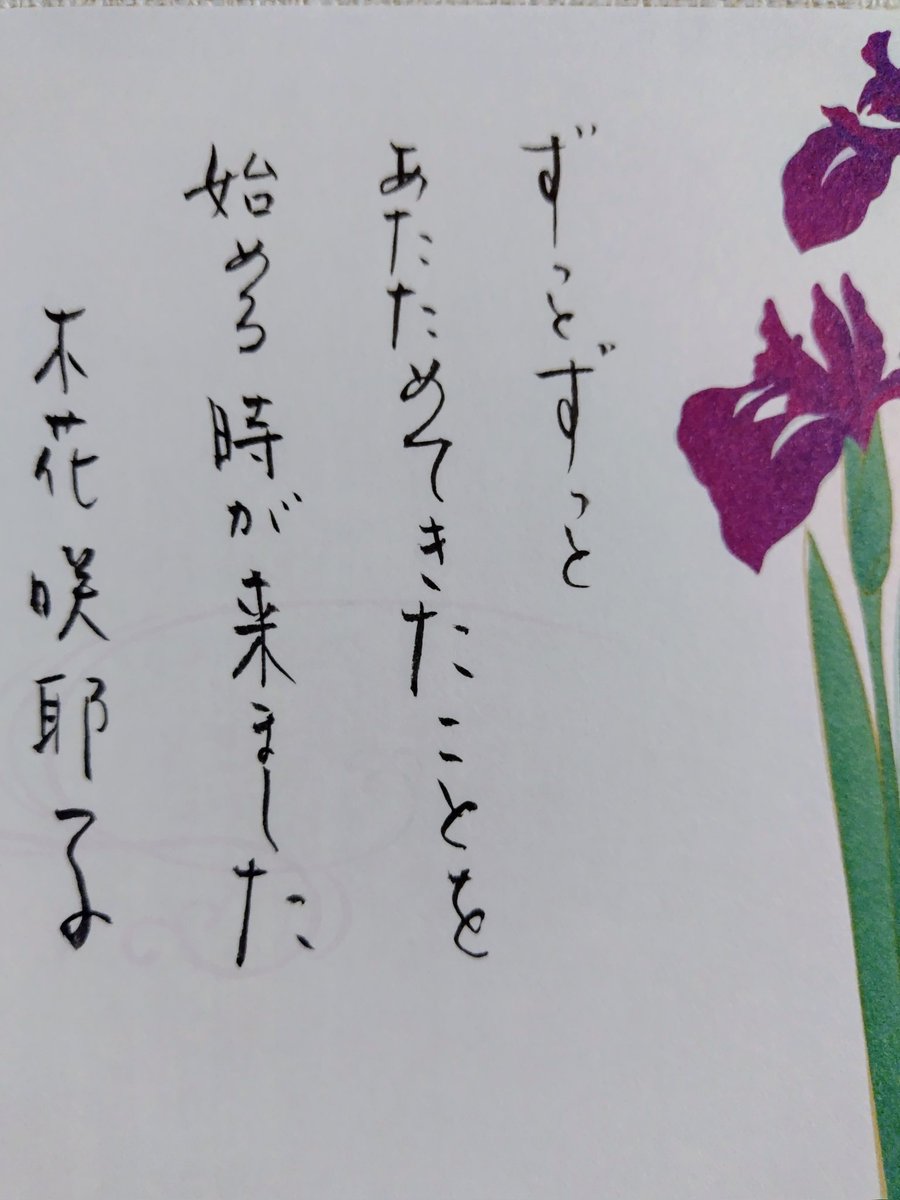 ずっとずっと
あたためてきたことを
始める時が来ました
木花咲耶子